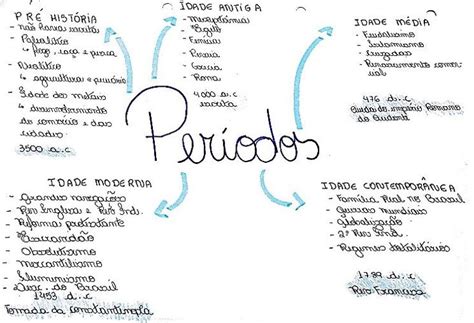 PRÉ HISTÓRIA
- Não havia escrita
- Paleolítico
↳ fogo, caça e pesca
- Neolítico
↳ agricultura e
- Idade dos metais
↳ desenvolvimento
do comércio e das
cidades
3500 a.c
IDADE ANTIGA
- Mesopotâmia
- Egito
- Fenícia
- Pérsia
- Grécia
- Roma
4000 a.c
escrita
IDADE MÉDIA
- Feudalismo
- Islamismo
- Cruzadas
- Renascimento comer-
cial
476 d.c
Queda do império Romano
do Ocidente
Períodos
IDADE MODERNA
- Grandes navegações
- Rev Inglesa e Rev Ind.
- Reforma protestante
- Escravidão
- Absolutismo
- Mercantilismo
- Iluminismo
- Desc. do Brasil
1453 d.c
Tomada da constantinopla
IDADE CONTEMPORÂNEA
- Família Real no Brasil
- Guerras Mundiais
- Globalização
- 2ª Rev Ind.
- Regimes totalitários
1789 d.c
Rev Francesa